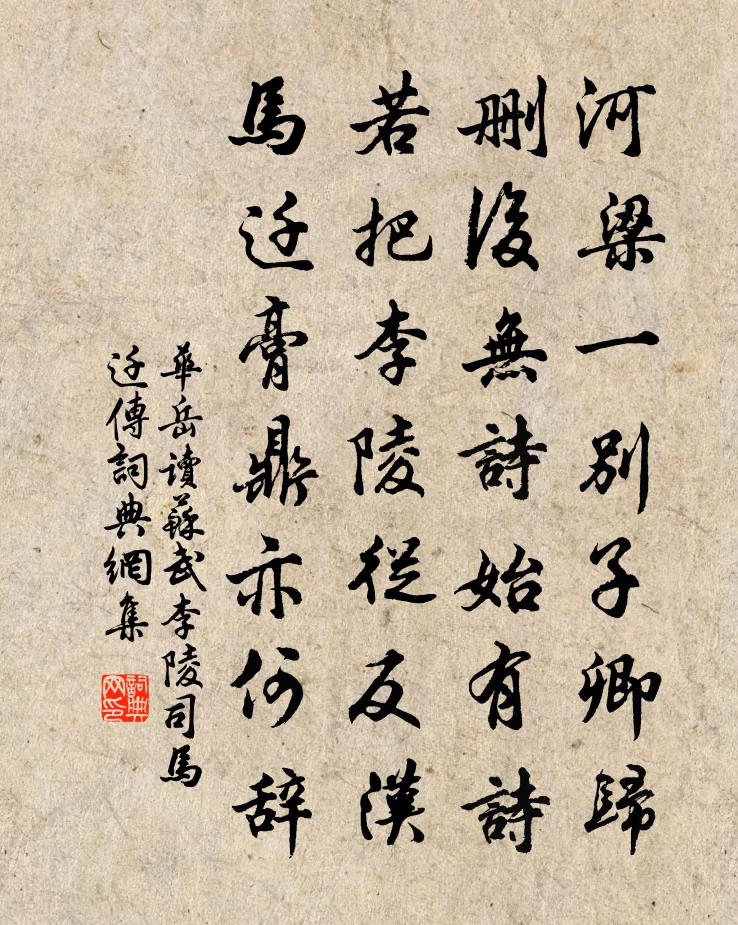 河梁一別子卿歸
刪後無詩始有詩
若把李陵從反漢
馬迁膏鼎亦何辞
華岳讀蘇武李陵司馬
迁傳詞典網集
詞典网印